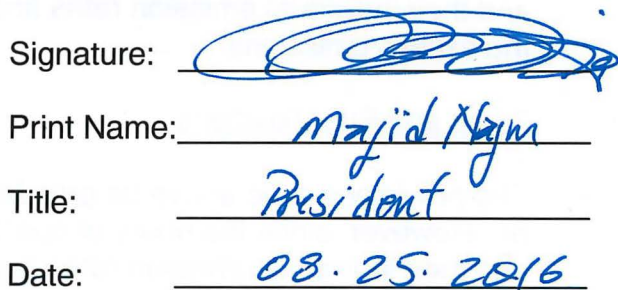 Signature:
Print Name: Majid Najm
Title: President
Date: 08.25.2016